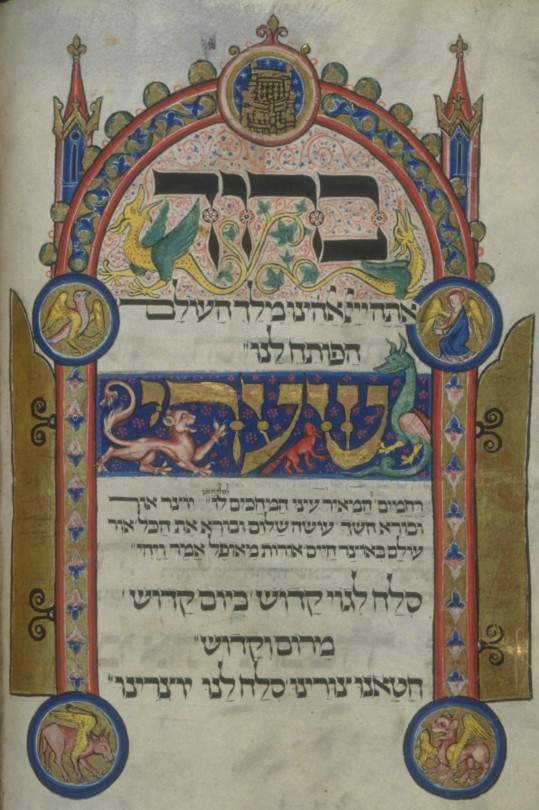 ברוך
אתה יי אלהינו מלך העולם
הפותח לנו
שערי
רחמים המאיר עיני המחכים לו יוצר אור
ובורא חשך עושה שלום ובורא את הכל אור
עולם באוצר חיים אורות מאופל אמר ויהי
סלח לגוי קדוש ביום קדוש
מרום וקדוש
חטאנו צורינו סלח לנו יוצרינו